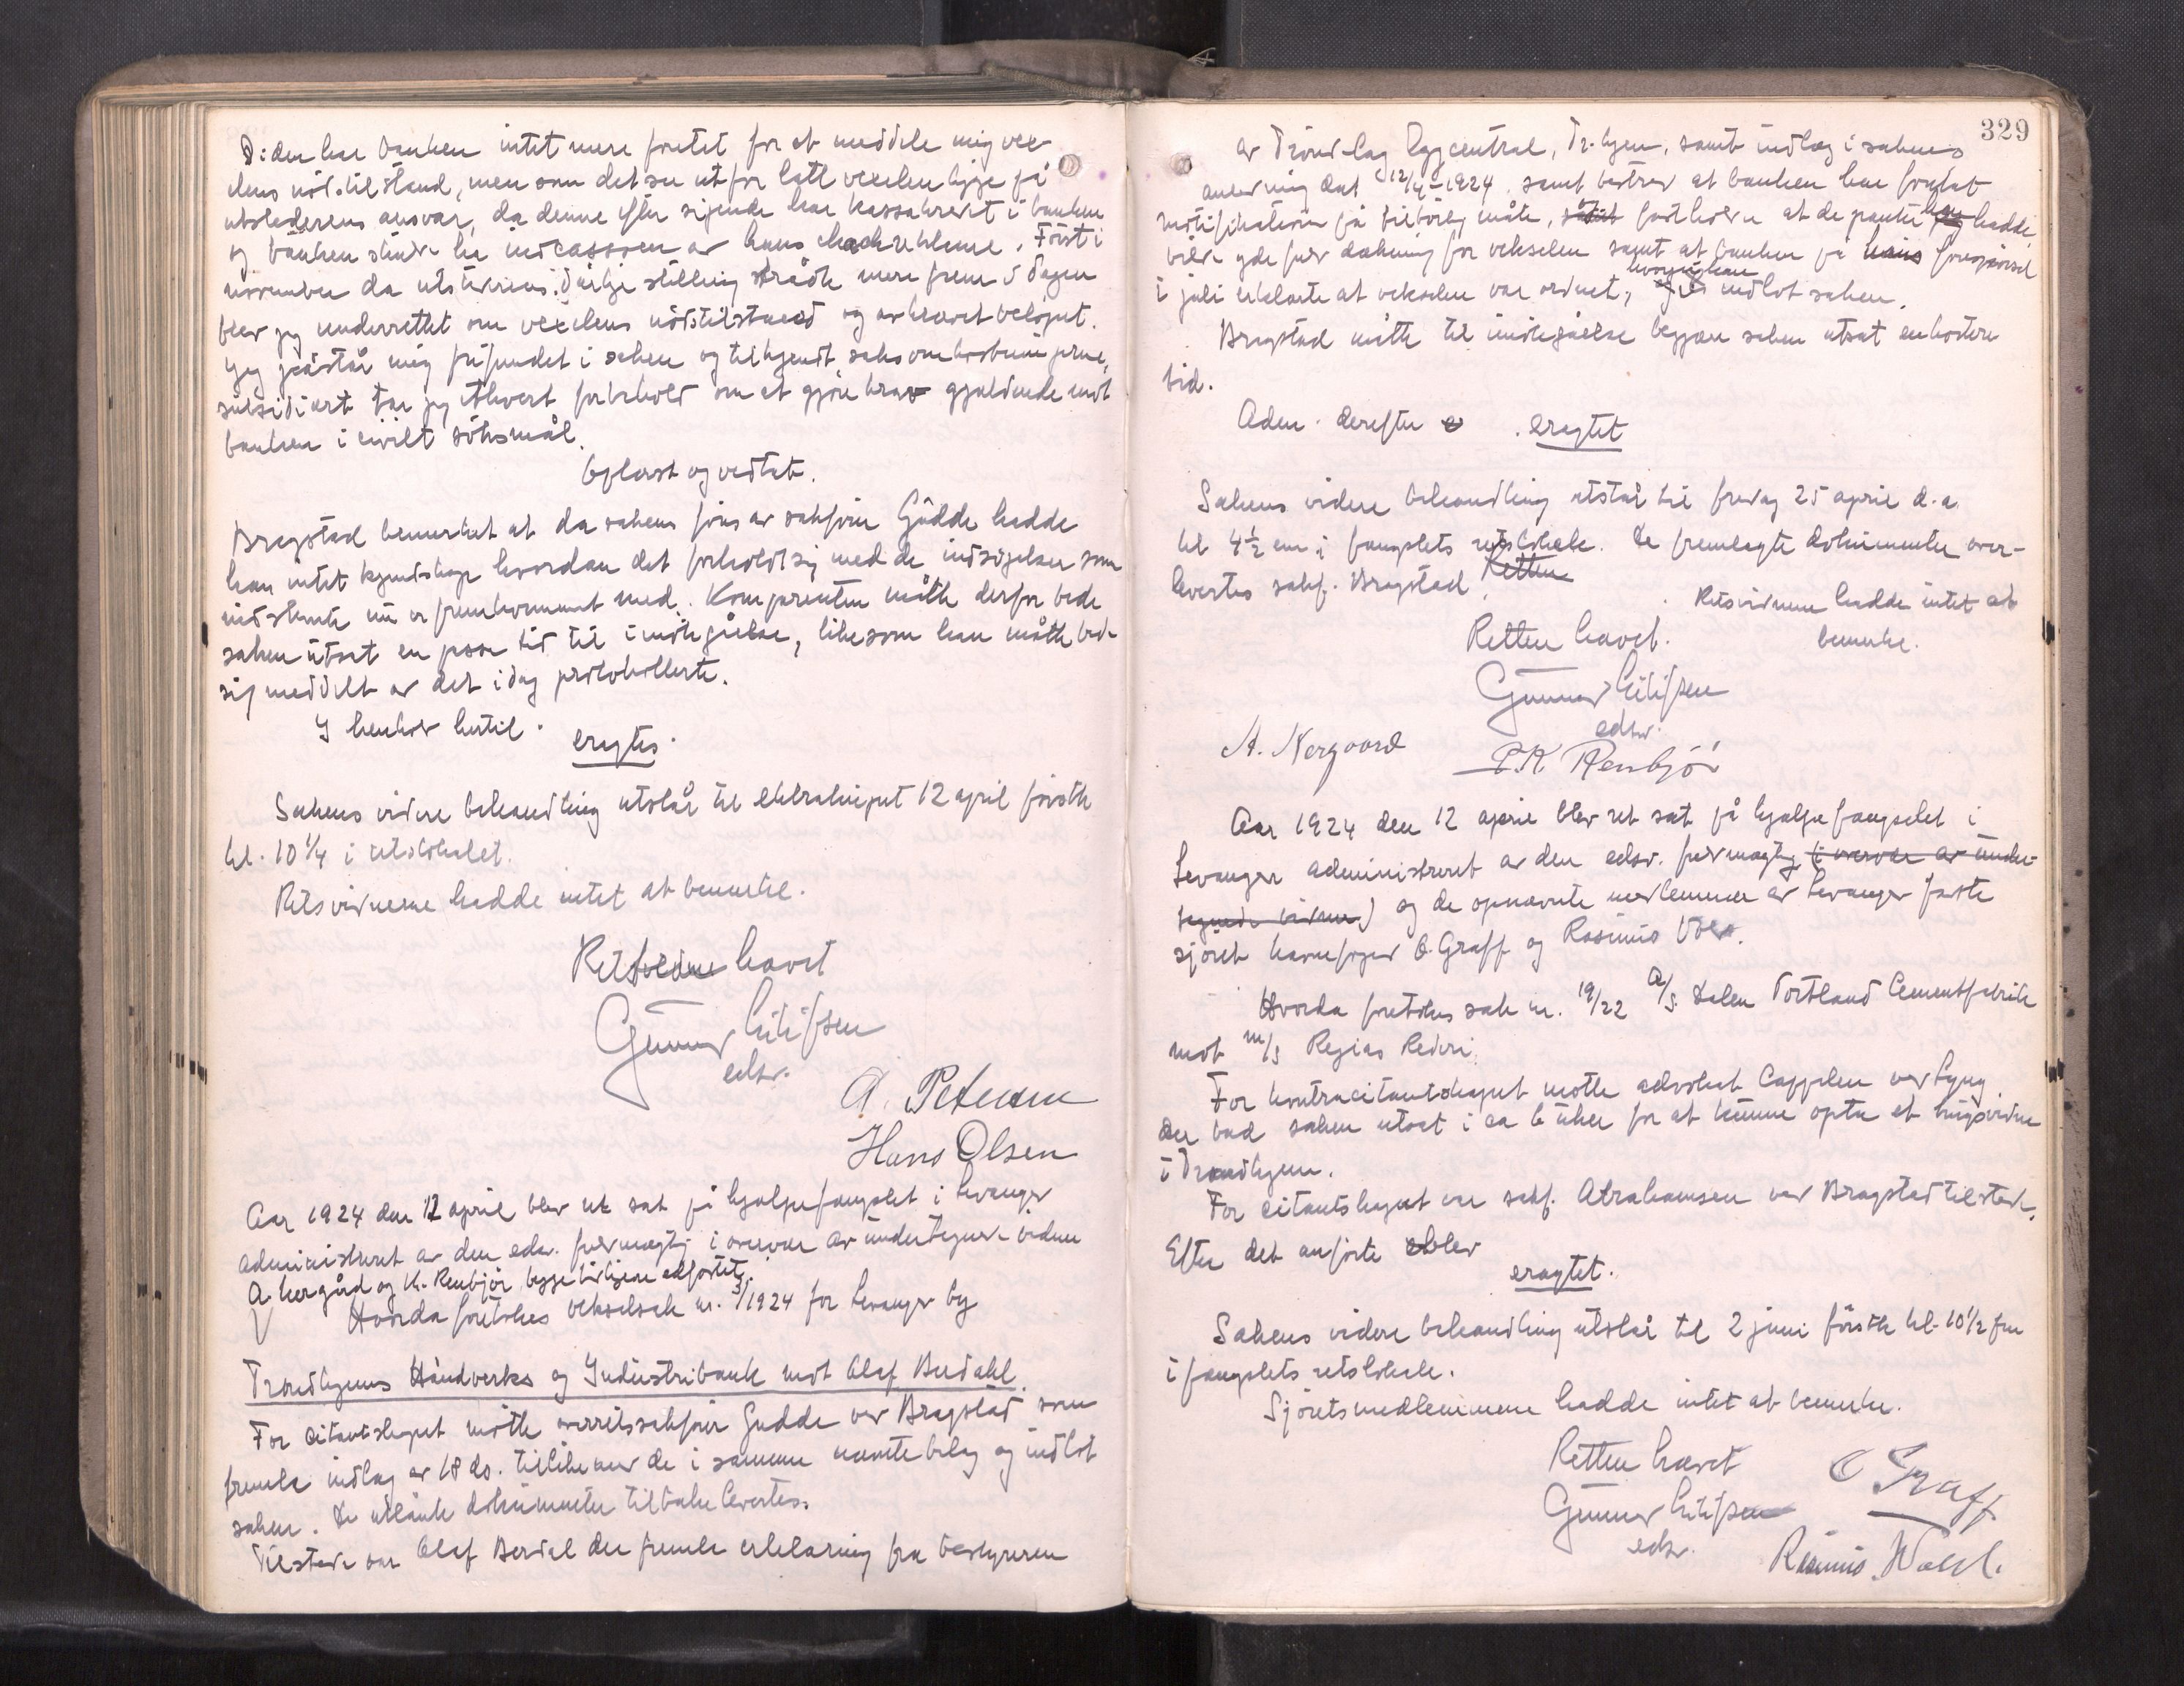 Siden har banken intet mere foretat for at meddele mig vex-
elens nödstilstand, men som det ser ut for latt vexelen ligge på
utstederens ansvar, da denne efter sigende har kassakredit i banken
og banken skulde ha indcassoen av hans
november da utstederens dårlige stilling trådte mere frem
blev jeg underrettet om vexelens nödstilstand og avkrævet belöpet.
Jeg påstår mig frifundet i saken og tilkjendt saksomkostningerne,
subsidiært tar jeg ethvert forbehold om at gjöre krav gjældende mot
banken i civilt söksmål.
Oplæst og vedtat.
Bragstad bemerket at da sakens förer er sakförer Gudde hadde
han intet kjendskap hvordan det forholdt sig med de indsigelser som
indstevnte nu er fremkommet med. Komparenten måtte derfor bede
saken utsat en passe tid til imötegåelse, likesom han måtte bede
sig meddelt av det idag protokollerte.
I henhold hertil
eragtes
Sakens videre behandling utstår til ekstratinget 12 april förstk
kl. 10 1/4 i retslokalet.
Retsvidnerne hadde intet at bemerke.
Retten hævet
Gunnar
edsv.
A. Petersen
Hans Olsen
Aar 1924 den 12 april blev ret sat på hjælpefængslet i Levanger
administreret av den edsv. fuldmægtig i overvær av undertegnede vidner
A. Nergård og K. Renbjör begge tidligere edfæstet.
Hvorda foretokes vekselsak nr. 3/1924 for Levanger by
Trondhjems Håndverks og Industribank mot Olaf Berdahl.
For citantskapet mötte overretssakförer Gudde ved Bragstad som
fremla indlæg av 18 ds. tillikemed de i samme nævnte bilag og indlot
saken. De utlånte dokumenter tilbakelevertes.
Tilstede var Olaf Berdal der fremla erklæring fra bestyreren
329
av Tröndelag Eggcentral, Tr.hjem, samt indlæg i sakens
anledning dat 12/4-1924, samt bestred at banken har foretat
notifikation på tilbörlig måte, samt fastholdt at de panter han hadde
vilde yde fuld dækning for vekselen samt at banken på hans forespörsel
i juli erklærte at vekselen var ordnet, hvorefter han indlot saken.
Bragstad måtte til imötegåelse begjære saken utsat en kortere
tid.
Adm. derefter eragtet
Sakens videre behandling utstår til fredag 25 april d.a.
kl 4½ em i fængslets retslokale. De fremlagte dokumenter over-
levertes sakf. Bragstad. Retten
Retsvidnerne hadde intet at
bemerke.
Retten hævet.
Gunnar
edsv.
A. Nergaard P.K Renbjör
Aar 1924 den 12 april blev ret sat på hjælpefængselet i
Levanger administreret av den edsv. fuldmægtig (i overvær av under-
tegnede vidner) og de opnævnte medlemmer av Levanger faste
sjöret havnefoged O. Graff og Rasmus Vold.
Hvorda foretokes sak nr. 19/22 A/S Dalen Portland Cementfabrik
mot M/S Regias Rederi.
For kontracitantskapet mötte advokat Cappelen ved Lyng
der bad saken utsat i ca 6 uker for at kunne opta et tingsvidne
i Trondhjem.
For citantskapet var sakf. Abrahamsen ved Bragstad tilstede.
Efter det anförte blev
eragtet.
Sakens videre behandling utstår til 2 juni förstk kl. 10½ fm
i fængslets retslokale.
Sjöretsmedlemmene hadde intet at bemerke.
Retten hævet
O Graff
Gunnar
edsv.
Rasmus Wold.